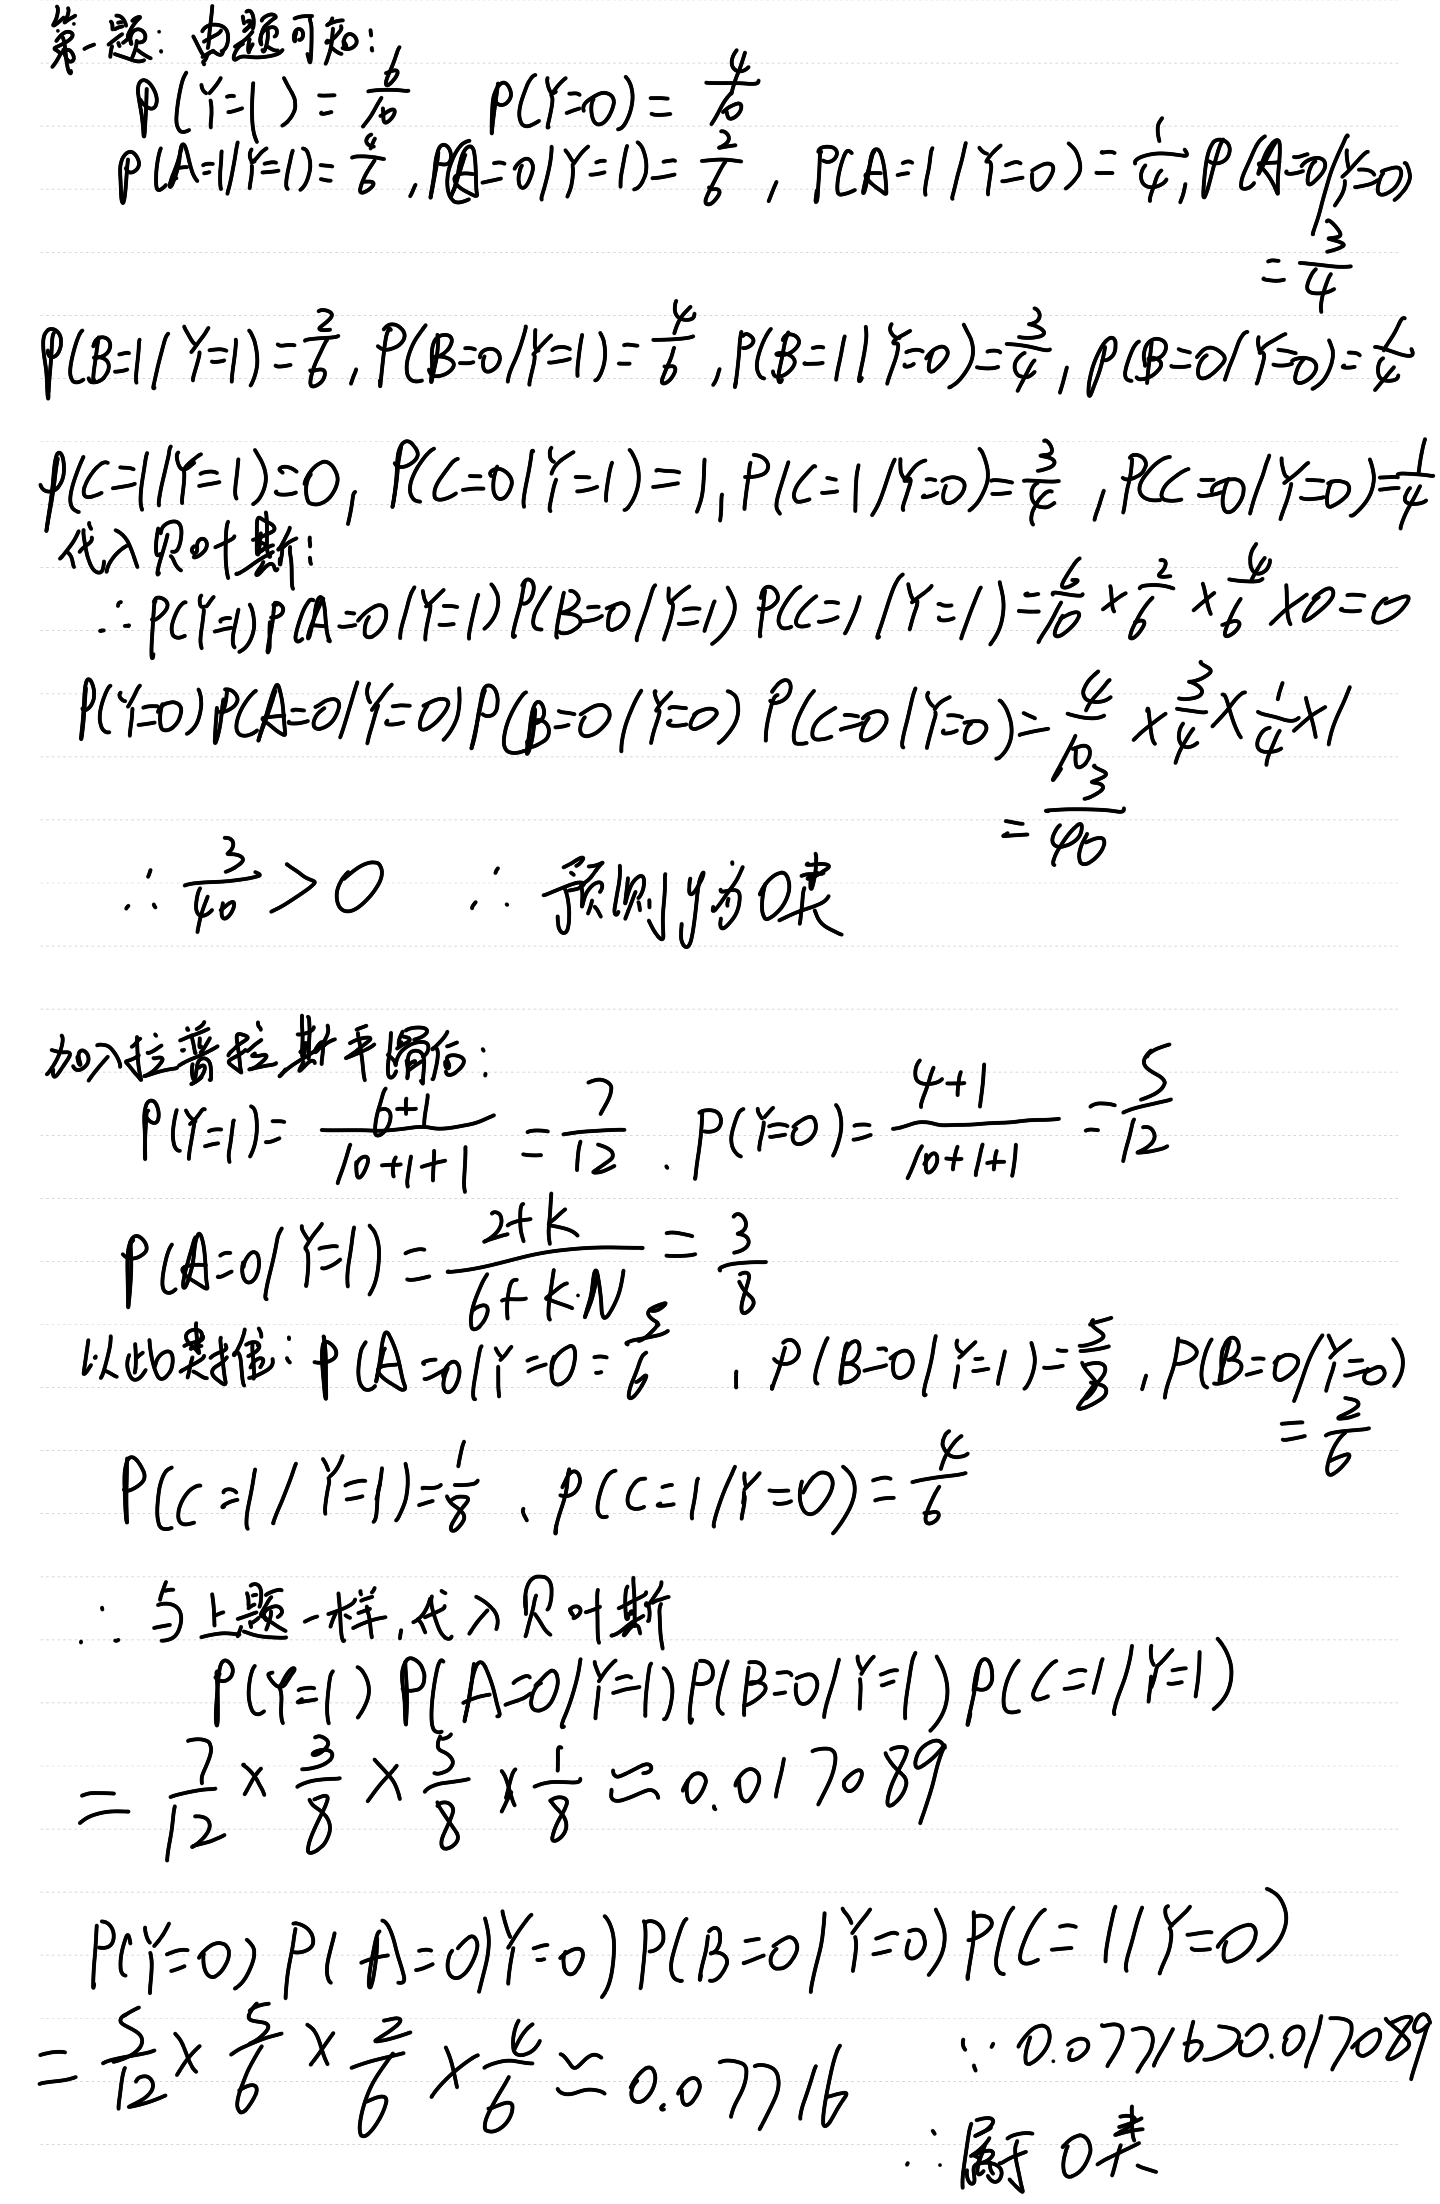 第一题: 由题可知:
P(Y=1) = 6/10 P(Y=0) = 4/10
P(A=1/Y=1)=4/6, P(A=0/Y=1)=2/6, P(A=1/Y=0)=1/4, P(A=0/Y=0)
=3/4
P(B=1/Y=1)=2/6, P(B=0/Y=1)=4/6, P(B=1|Y=0)=3/4, P(B=0/Y=0)=1/4
P(C=1/Y=1)=0, P(C=0/Y=1)=1, P(C=1/Y=0)=3/4, P(C=0/Y=0)=1/4
代入贝叶斯:
∴P(Y=1)P(A=0/Y=1)P(B=0/Y=1)P(C=1/Y=1)=6/10×2/6×4/6×0=0
P(Y=0)P(A=0/Y=0)P(B=0/Y=0)P(C=0/Y=0)=4/10×3/4×1/4×1
=3/40
∴3/40>0 ∴预测y为0类
加入拉普拉斯平滑后:
P(Y=1)=(6+1)/(10+1+1)=7/12. P(Y=0)=(4+1)/(10+1+1)=5/12
P(A=0/Y=1)=(2+K)/(6+K·N)=3/8
以此类推: P(A=0/Y=0=5/6, P(B=0/Y=1)=5/8, P(B=0/Y=0)
=2/6
P(C=1/Y=1)=1/8、P(C=1/Y=0)=4/6
∴与上题一样,代入贝叶斯
P(Y=1)P(A=0/Y=1)P(B=0/Y=1)P(C=1/Y=1)
=7/12×3/8×5/8×1/8≈0.017089
P(Y=0)P(A=0|Y=0)P(B=0/Y=0)P(C=1/Y=0)
=5/12×5/6×2/6×4/6≈0.07716 ∵0.07716>0.017089
∴属于0类